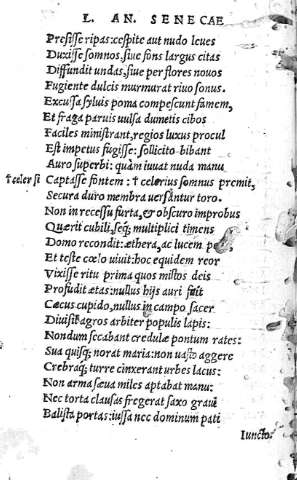 L. AN. SENECAE
Pressisse ripas: cespite aut nudo leues
Duxisse somnos, siue fons largus citas
Diffundit undas, siue per flores nouos
Fugiente dulcis murmurat riuo sonus.
Excussa syluis poma compescunt famem,
Et fraga paruis uulsa dumetis cibos
Faciles ministrant, regios luxus procul
Est impetus fugisse: sollicito bibant
Auro superbi: quàm iuuat nuda manu
† celer si Captasse fontem: † celerius somnus premit,
Secura duro membra uersantur toro.
Non in recessu furta, & obscuro improbus
Quaerit cubili, seq; multiplici timens
Domo recondit: aethera, ac lumen
Et teste coelo uiuit: hoc equidem reor
Vixisse ritu prima quos mistos deis
Profudit aetas: nullus hijs auri fuit
Caecus cupido, nullus in campo sacer
Diuisit agros arbiter populis lapis:
Nondum secabant credulae pontum rates:
Sua quisq; norat maria: non uasto aggere
Crebraq; turre cinxerant urbes latus:
Non arma saeua miles aptabat manu:
Nec torta clausas fregerat saxo graui
Balista portas: iussa nec dominum pati
Iuncto.